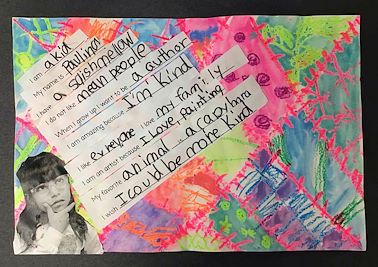 I am a kid
My name is Paulina
I have a sqishmellow
I do not like mean people
When I grow up I want to be a author
I am amazing because I'm Kind
I like everyone I love my family
I am an artist because I love painting
My favorite animal is a capybara
I wish I could be more Kind